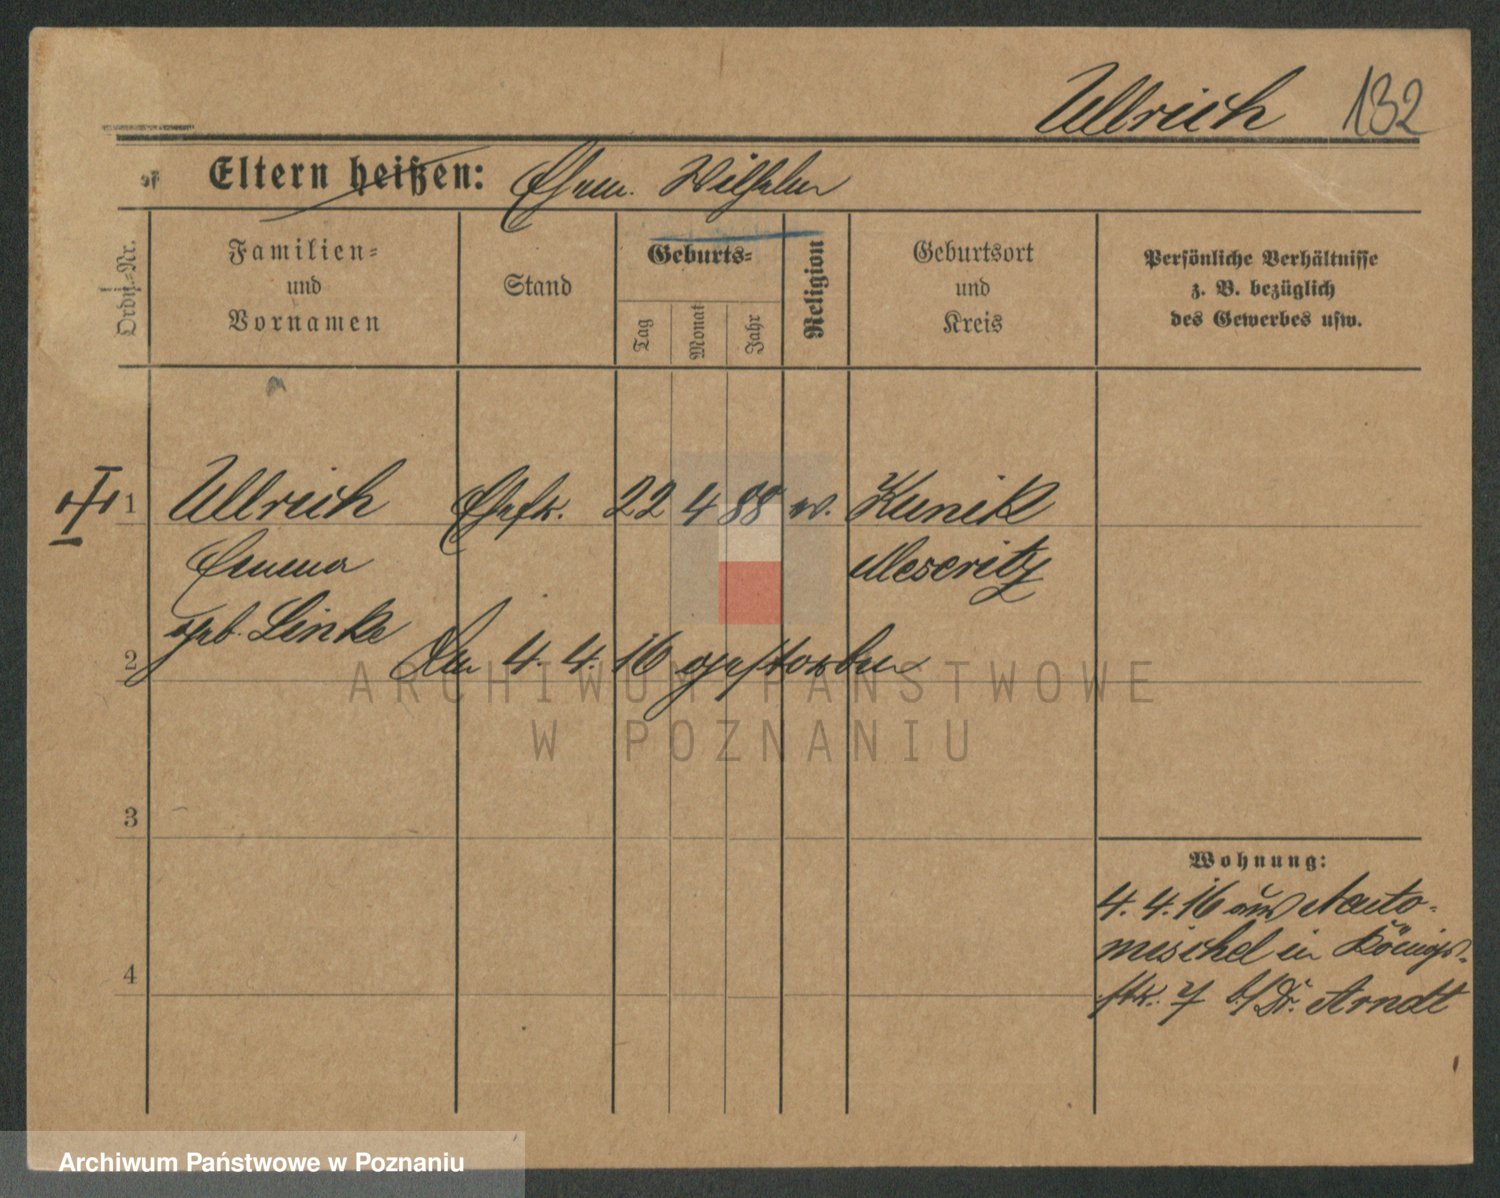 Ullrich 132
Eltern heißen: Ehem. Wilhelm
Ordn.-Nr.
Familien-
und
Vornamen
Stand
Geburts-
Tag
Monat
Jahr
Religion
Geburtsort
und
Kreis
Persönliche Verhältnisse
z. B. bezüglich
des Gewerbes usw.
1 Ullrich Ehefr. 22 4 88 w. Kunik
Emma Meseritz
geb. Linke
2 Am 4. 4. 16 gestorben
3
4
Wohnung:
4. 4. 16 aus
mischel in Königs-
str. 7 b/ Dr. Arndt
ARCHIWUM PAŃSTWOWE
W POZNANIU
Archiwum Państwowe w Poznaniu